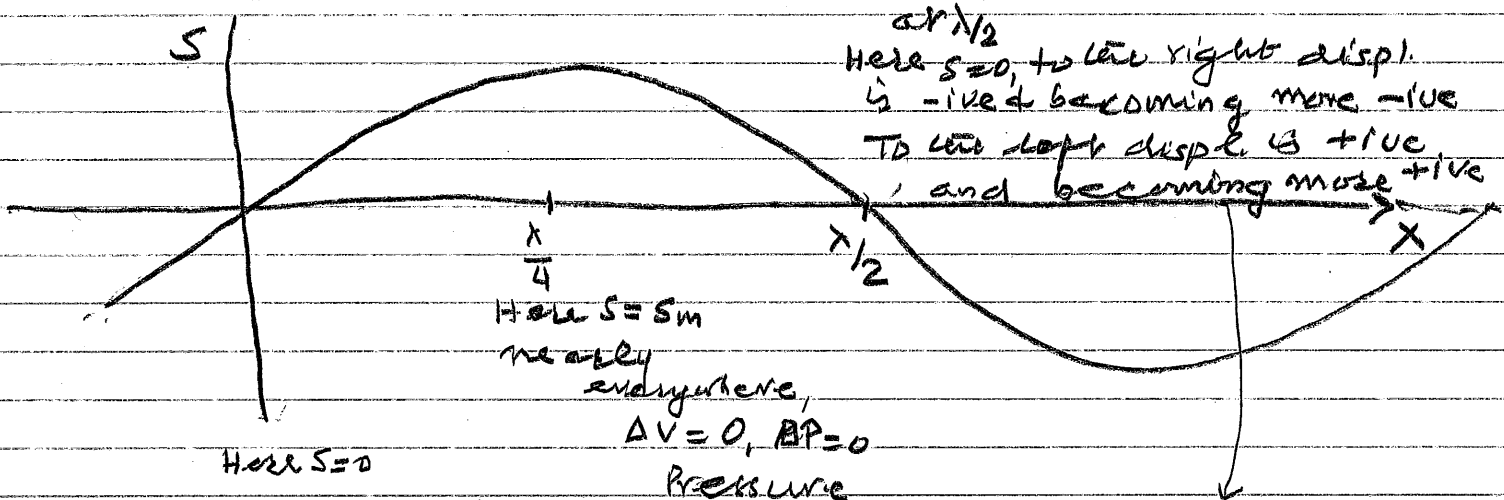 S
at λ/2
Here S=0, to the right displ.
is -ive & becoming more -ive
To the left displ. is +ive
, and becoming more +ive
λ/4
λ/2
X
Here S = Sm
nearly
everywhere,
ΔV = 0, ΔP=0
Pressure
Here S=0